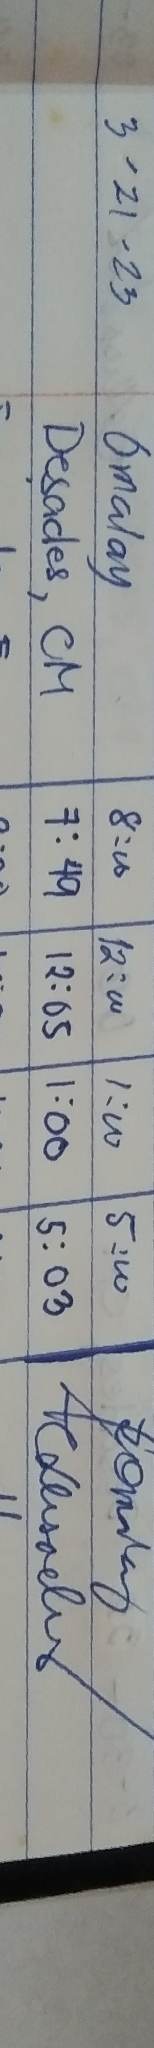 3-21-23 Omalay 8:00 12:00 1:00 5:00
Desades, CM 7:49 12:05 1:00 5:03